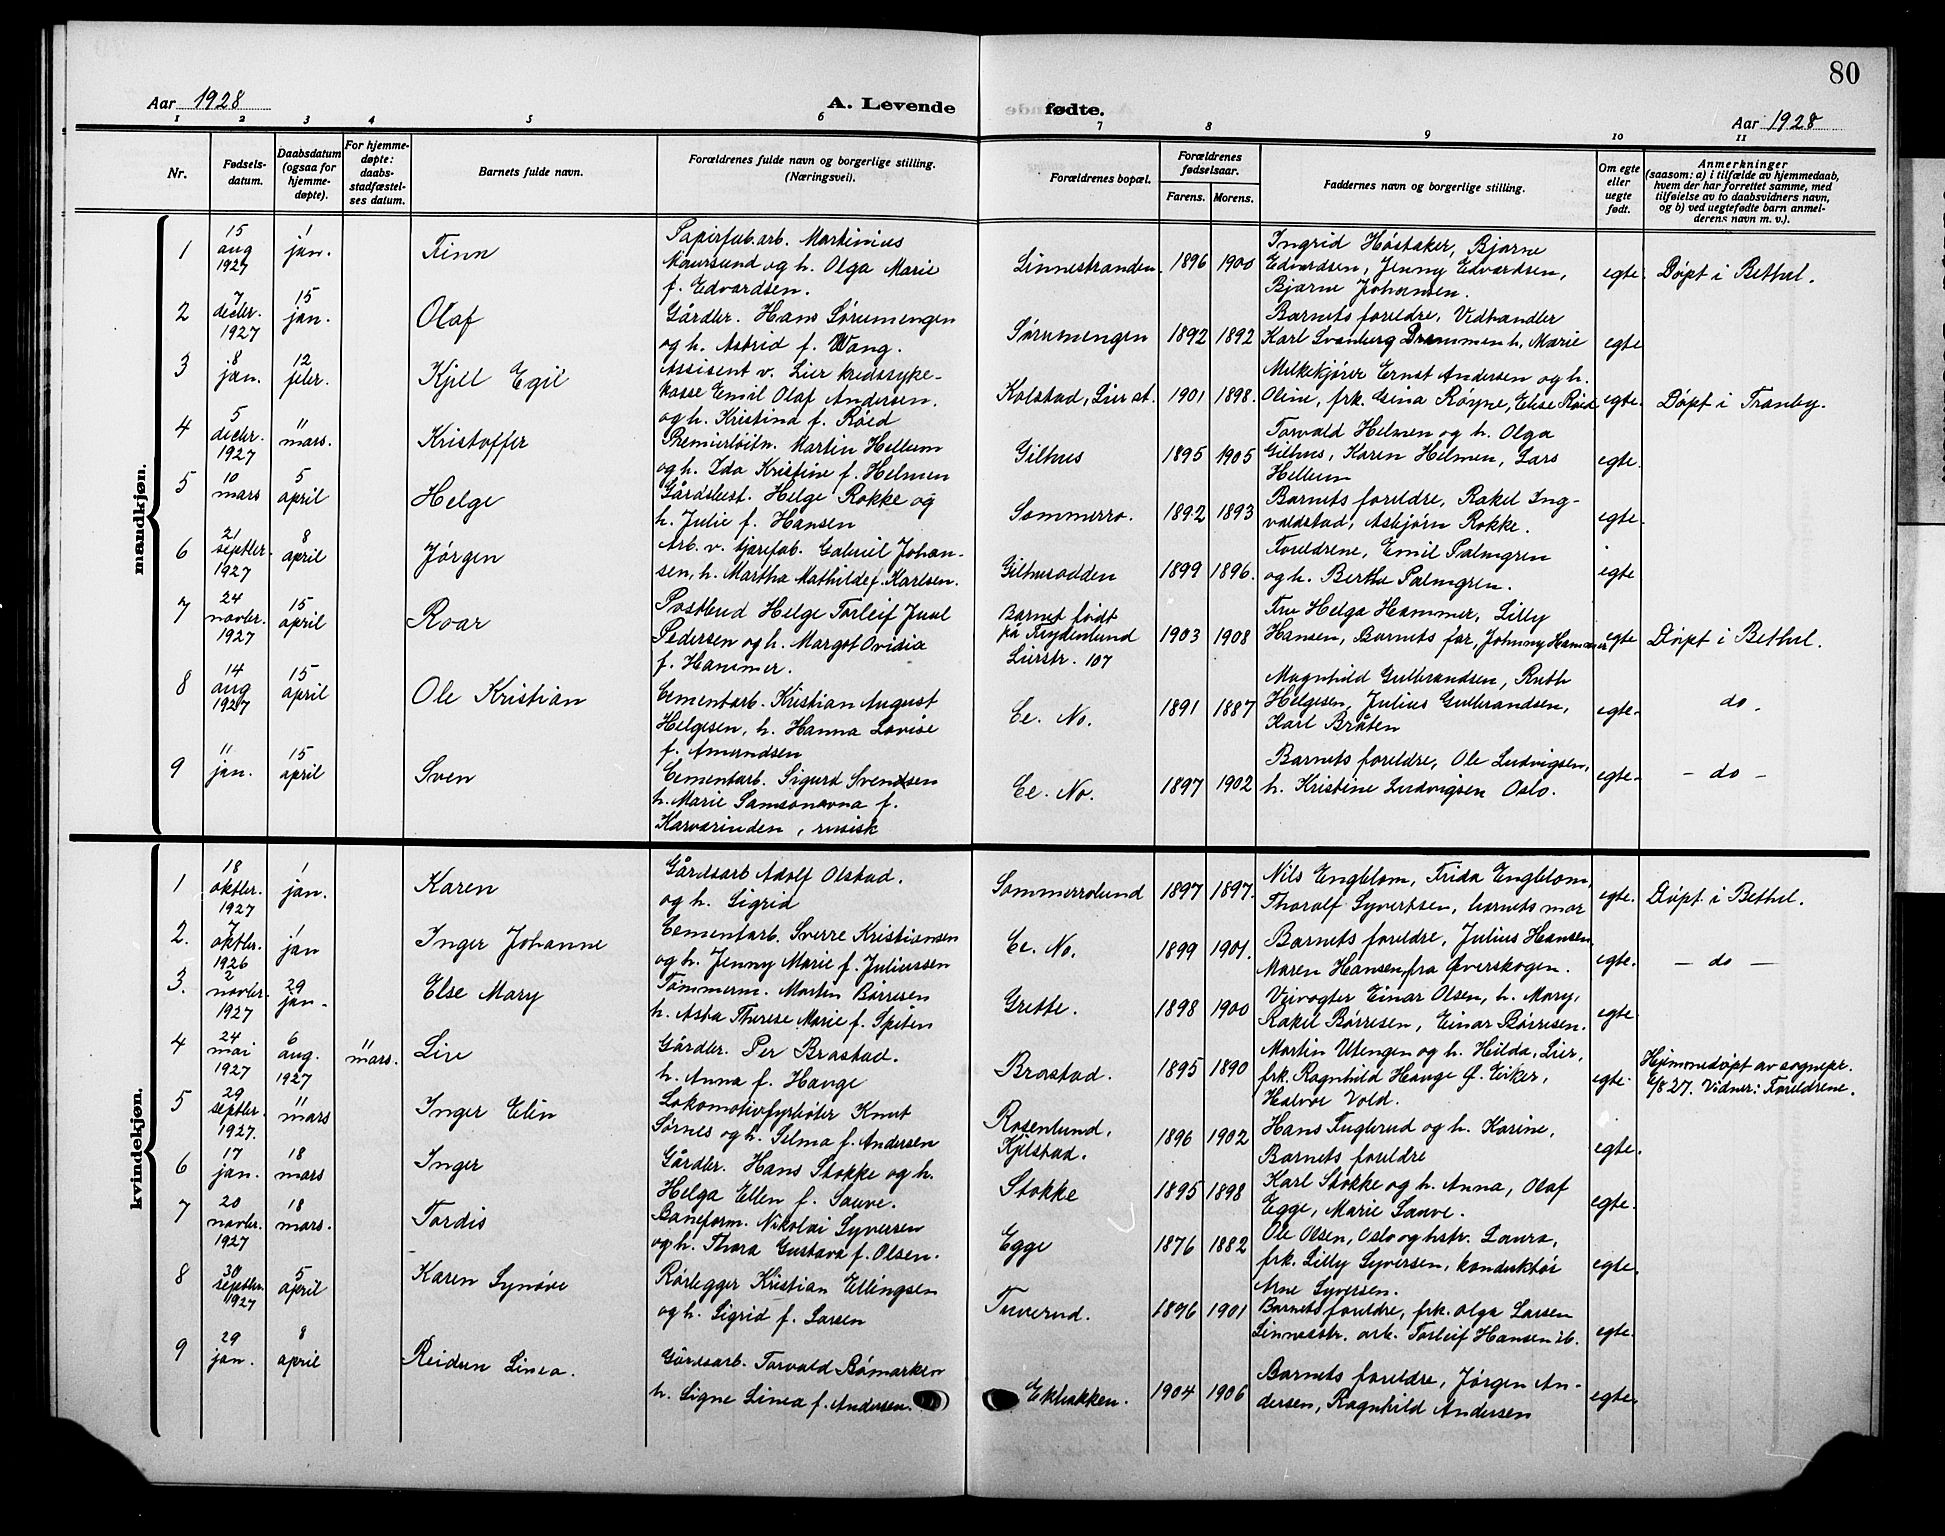 80
Aar 1928
A. Levende fødte.
Aar 1928
1 2 3 4 5 6 7 8 9 10 11
Nr.
Fødsels-
datum.
Daabsdatum
(ogsaa for
hjemme-
døpte).
For hjemme-
døpte:
daabs-
stadfæstel-
ses datum.
Barnets fulde navn.
Forældrenes fulde navn og borgerlige stilling.
(Næringsvei).
Forældrenes bopæl.
Forældrenes
fødselsaar.
Farens. Morens.
Faddernes navn og borgerlige stilling.
Om egte
eller
uegte
født.
Anmerkninger
(saasom: a) i tilfælde av hjemmedaab,
hvem der har forrettet samme, med
tilføielse av to daabsvidners navn,
og b) ved uegtefødte barn anmel-
derens navn m. v.).
mandkjøn.
1
15
aug
1927
1
jan.
Finn
Papirfab.arb. Martinius
Maursund og h. Olga Marie
f. Edvardsen.
Linnestranden.
1896 1900
Ingrid Høstaker, Bjarne
Edvardsen, Jenny Edvardsen,
Bjarne Johansen.
egte
Døpt i Bethel.
2
7
decbr.
1927
15
jan.
Olaf
Gårdbr. Hans Sørumengen
og h. Astrid f. Wang.
Sørumengen
1892 1892
Barnets foreldre, Vedhandler
Karl Svanberg Drammen h. Marie
egte
3
8
jan.
12
febr.
Kjell Egil
Assisent v. Lier kredssyke-
kasse Emil Olaf Andersen.
og h. Kristina f. Røed
Kolstad, Lier st.
1901 1898.
Melkekjører Ernst Andersen og h.
Oline, frk. Gina Røyne, Elise Røed
egte.
Døpt i Tranby.
4
5
decbr.
1927
11
mars.
Kristoffer
Premierløitn. Martin Hellum
og h. Ida Kristine f. Helmen
Gilhus
1895 1905
Torvald Helmen og h. Olga
Gilhus, Karen Helmen, Lars
Hellum
egte.
5
10
mars
5
april
Helge
Gårdsbest. Helge Rokke og
h. Julie f. Hansen
Sommerro.
1892 1893
Barnets foreldre, Rakel Ing-
valdstad, Asbjørn Rokke.
egte.
6
21
septbr.
1927
8
april
Jørgen
Arb. v. tjærefab. Gabriel Johan-
sen, h. Martha Mathilde f. Karlsen.
Gilhusodden
1899 1896.
Foreldrene, Emil Palmgren
og h. Bertha Palmgren.
egte
7
24
novbr.
1927
15
april
Roar
Postbud Helge Torleif Juul
Pedersen og h. Margot Ovidia
f. Hammer.
Barnet født
på Frydenlund
Lierstr. 107
1903 1908
Fru Helga Hammer, Lilly
Hansen, Barnets far, Johnny Hammer
egte
Døpt i Bethel.
8
14
aug
1927
15
april
Ole Kristian
Cementarb. Kristian August
Helgesen, h. Hanna Lovise
f. Amundsen
Ee. No.
1891 1887
Magnhild Gulbrandsen, Ruth
Helgesen, Julius Gulbrandsen,
Karl Bråten
egte.
do.
9
11
jan.
15
april
Sven
Cementarb. Sigurd Svendsen
h. Marie Samsonovna f.
Karvarinden, rusisk
Ee. No.
1897 1902
Barnets foreldre, Ole Ludvigsen,
h. Kristine Ludvigsen Oslo.
egte.
– do –
kvindekjøn.
1
18
oktbr.
1927
1
jan.
Karen
Gårdsarb Adolf Olstad.
og h. Sigrid
Sommerrolund
1897 1897.
Nils Engblom, Frida Engblom,
Thoralf Syvertsen, barnets mor
egte.
Døpt i Bethel.
2.
7
oktbr.
1926
1
jan
Inger Johanne
Cementarb. Sverre Kristiansen
og h. Jenny Marie f. Juliussen
Ee. No.
1899 1901.
Barnets foreldre, Julius Hansen
Maren Hansen, fra Øverskogen.
egte.
– do –
3.
2
novbr.
1927
29
jan.
Else Mary
Tømmerm. Morten Børresen
h. Asta Therese Marie f. Speten
Grette.
1898 1900
Veivogter Einar Olsen, h. Mary,
Rakel Børresen, Einar Børresen.
egte.
4
24
mai
1927
6
aug.
1927
11
mars.
Liv
Gårdbr. Per Brastad.
h. Anna f. Hauge
Brastad.
1895 1890
Martin Utengen og h. Hilda, Lier,
frk. Ragnhild Hauge Ø. Eiker,
Halvor Vold.
egte.
Hjemmedøpt av sognepr.
6/8 27. Vidner: Foreldrene.
5
29
septbr.
1927.
11
mars
Inger Elin
Lokomotivfyrbøter Knut
Sørnes og h. Selma f. Andersen
Rosenlund,
Kjelstad.
1896 1902
Hans Fuglerud og h. Karine,
Barnets foreldre
egte.
6
17
jan.
18
mars
Inger
Gårdbr. Hans Stokke og h.
Helga Ellen f. Sauve.
Stokke
1895 1898
Karl Stokke og h. Anna, Olaf
Egge, Marie Sauve.
egte.
7
20
novbr.
1927
18
mars.
Tordis
Baneform. Nikolai Syversen
og h. Thora Gustava f. Olsen.
Egge
1876 1882
Ole Olsen, Oslo og hstr. Laura,
frk. Lilly Syversen, konduktør
Arne Syversen.
egte.
8
30
septbr.
1927
5
april
Karen Synøve
Rørlegger Kristian Ellingsen
og h. Sigrid f. Larsen
Tuverud.
1896 1901
Barnets foreldre, frk. Olga Larsen
Linnesstr. arb. Torleif Hansen ib.
egte.
9
29
jan.
8
april
Reidun Linea.
Gårdsarb. Torvald Bømarken
h. Signe Linea f. Andersen.
Ekbakken.
1904 1906
Barnets foreldre, Jørgen An-
dersen, Ragnhild Andersen
egte.